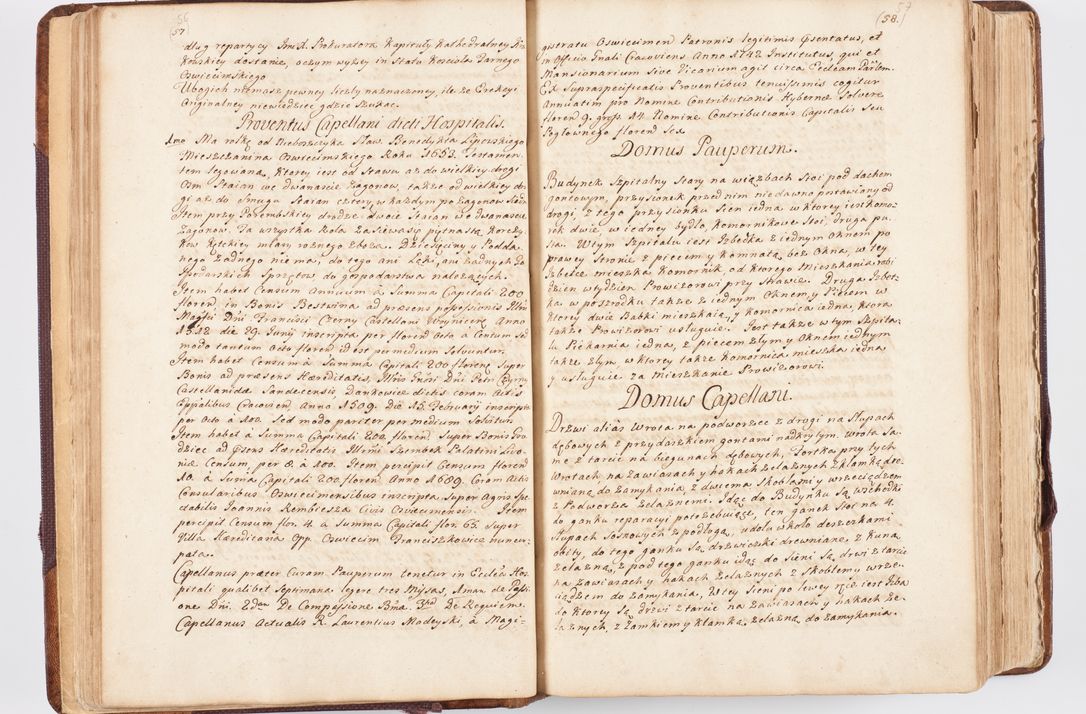 56
(57
dług repartycy Jmćd. Prokuratora Kapituły Kathedralney Kra
kowskiey dostanie, oczym wyżey in Statu Kościoła Farnego
Oswiecimskiego
Ubogich niemasz pewney liczby naznaczoney, ile że Erekcyi
Originalney niewiedzieć gdzie szukac.
Proventus Capellani dicti Hospitalis.
1mo Ma rolkę od Nieboszczyka Sław. Benedykta Liporskiego
Mieszczanina Oswiecimskiego Roku 1653. Testamen
tem legowaną, ktorey iest od Stawu aż do wielkiey drogi
Osm Staian we dwanascie Zagonow, także od wielkiey dro
gi aż do Smuga Staian cztery w każdym po Zagonow Siedm
Item przy Porembskiey drodze dwoie Staian we dwanascie
Zagonow. Ta wszystka Rola zasiewa się piętnastą Korcy
kow Kętckiey miary rożnego zboża. Dziesięciny y Podda
nego żadnego nie ma, do tego ani Łęki, ani żadnych Go
spodarskich Sprzętow do gospodarstwa należących.
Item habet Censum Annuum à Summa Capitali 200
floren. in Bonis Bestwina ad præsens possessionis Illmi
Magfci Dni Francisci Czerny Castellani Woynicen. Anno
1512 die 29. Junij inscripta per floren Octo à Centum sed
modo tantum Octo floren id est per medium Solvuntur.
Item habet Censum à Summa Capitali 200 floren. Super
Bonis ad præsens Hæreditatis, Illmi Dni Petri Czerny
Castellanida Sandecensis, Dankowice dictis coram Actis
Eppalibus Cracovien. Anno 1509. Die 15. Februarij inscripta
per Octo à 100. Sed modo pariter per medium Solvitur.
Item habet à Summa Capitali 200. floren. Super Bonis Gro
dziec ad Præsens Hæreditatis, Illmi Szembek Palatini Livo
niæ Censum, per 8. à 100. Item percipit Censum floren
10. à Suma Capitali 202 floren. Anno 1609. Coram Actis
Consularibus Oswiecimensibus inscripta, super Agris Spe
ctabilis Joannis Rembiesza Civis Osviecimen. Item
percipit Censum flor. 4. à Summa Capitali flor. 65. Super
Villa Hæreditaria Opp. Oswiecim Franciszkowice nuncu-
pata.
Capellanus præter Curam Pauperum tenetur in Ecclia Hos
pitali qualibet Septimana legere tres Missas, 1mam de Passi
one Dni. 2dam De Compassione Bma. 3tiâ De Requiem.
Capellanus Actualis R. Laurentius Modeyski, à Magi-
57
(58.)
gistratu Oswiecimen Patronis legitimis Præsentatus, et
in Officio Gnali Cracoviens Anno 1742 Institutus, qui et
Mansionarium sive Vicarium agit circa Eccleam Parlem.
Ex Supraspecificatis Proventibus tenuissimis cogitur
Annuatim pro Nomine Contributionis Hybernæ Solvere
floren 9. gross. 14. Nomine Contributionis Capitalis Seu
Pogłownego floren Sex.
Domus Pauperum.
Budynek Szpitalny Stary na więzbach Stoi pod dachem
gontowym, przysionek przed nim niedawno postawiony od
drogi, z tego przysionku Sien iedna, w ktorey iest komo
rek dwie, w iedney bydło komornikowe Stoi, druga pu
sta. W tym Szpitalu iest Izbecka z iednym Oknem po
prawey stronie z piecem y komnatą bez Okna, w tey
Izbetce mieszka Komornik, od ktorego mieszkania robi
dzien w tydzien Prowizorowi przy strawie. Druga Izbet
ka w poszrodku także z iednym Oknem y Piecem w
ktorey dwie Babki mieszkaią, y Komornica iedna, ktora
także Prowizorowi usługuie. Jest także w tym Szpita
lu Piekarnia iedna, z piecem złym y Oknem iednym
także złym, w ktorey także Komornica mieszka iedna
y usługuie za mieszkanie Prowizorowi.
Domus Capellani.
Drzwi aliàs Wrota na podworzec z drogi na słupach
dębowych z przydaszkiem gontami nadkrytym. Wrota Sa
me z tarcic na biegunach dębowych, Fortka przy tych
Wrotach na zawiasach y hakach żelaznych z klamką dre
wnianą do zamykania, z dwiema Skoblami y wrzeciądzem
z Podworza żelaznemi. Idąc do Budynku Są wschodki
do ganku reparacyi potrzebuiące, ten ganek Stoi na 4.
słupach Sosnowych z podłogą, udołu wkoło deszczkami
obity, do tego ganku Są drzwiczki drewniane z Kuną
żelazną, z pod tego ganku idąc do Sieni Są drzwi z tarcic
na zawiasach y hakach żelaznych z Skoblemy wrze-
ciądzem do zamykania. W tey Sieni po lewey ręce iest Izba
do ktorey Są drzwi z tarcic na zawiasach y hakach że
laznych, z Zamkiem y klamką żelazną do zamykania.